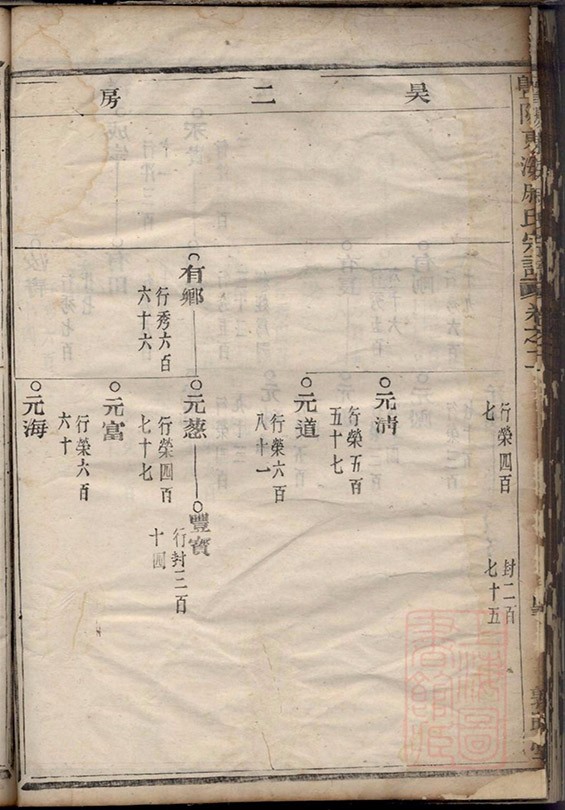 吴二房
氏宗譜
卷之
行榮四百
七
封二百
七十五
元清
行榮五百
五十七
元道
行榮六百
八十一
有鄉
行秀六百
六十六
元慈
行榮四百
七十七
豐寳
行封二百
十四
元富
行榮六百
六十
元海